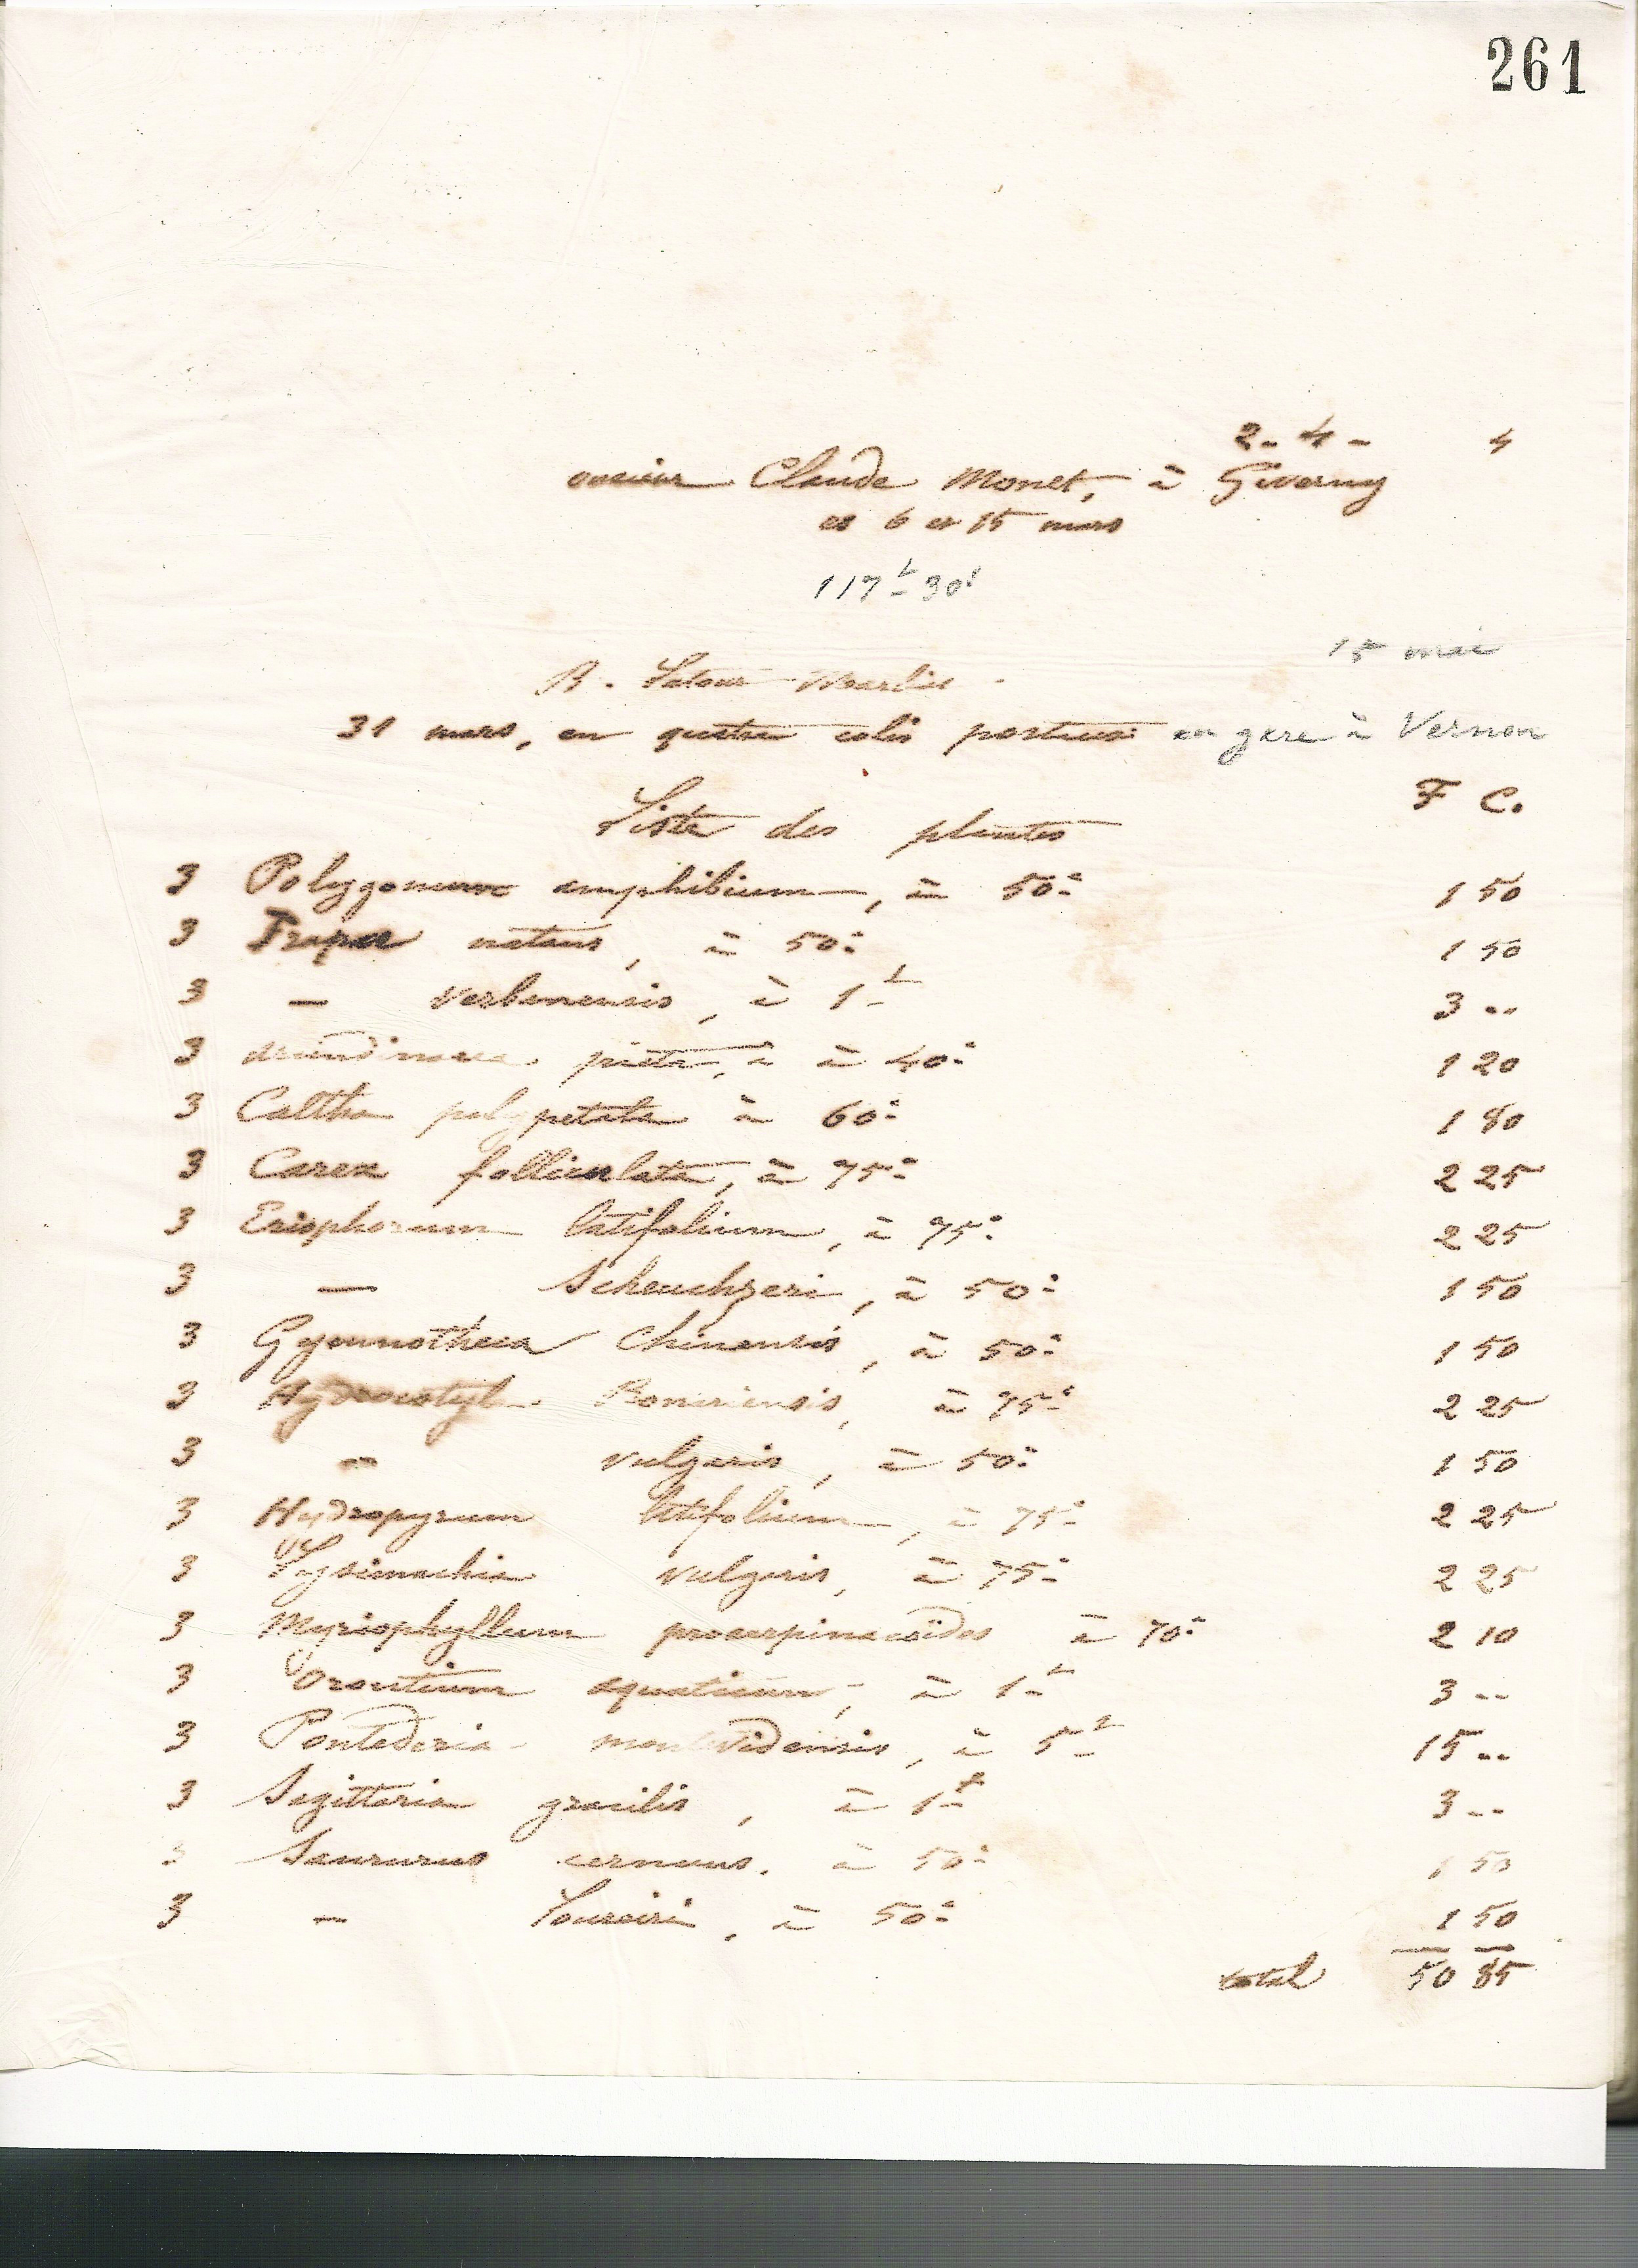 261
2 - 4 - 4
onsieur Claude Monet, à Giverny
es 6 et 15 mars
117f 30c
15 mai
B. Latour-Marliac
31 mars, en quatre colis postaux en gare à Vernon
F C.
Liste des plantes
3 Polygonum amphibium, à 50c 1 50
3 Trapa natans, à 50c 1 50
3 — verbanensis, à 1f 3 --
3 arundinaria picta, à à 40c 1 20
3 Caltha polypetala à 60c 1 80
3 Carex folliculata, à 75c 2 25
3 Eriophorum latifolium, à 75c 2 25
3 — Scheuchzeri, à 50c 1 50
3 Gymnotheca Chinensis, à 50c 1 50
3 Hydrocotyle Bonariensis, à 75c 2 25
3 — vulgaris, à 50c 1 50
3 Hydropyrum latifolium, à 75c 2 25
3 Lysimachia vulgaris, à 75c 2 25
3 Myriophyllum proserpinacoïdes à 70c 2 10
3 Orontium aquaticum, à 1f 3 --
3 Pontederia montevidensis, à 5f 15 --
3 Sagittaria gracilis, à 1f 3 --
3 Saururus cernuus, à 50c 1 50
3 — Loureiri, à 50c 1 50
total 50 85